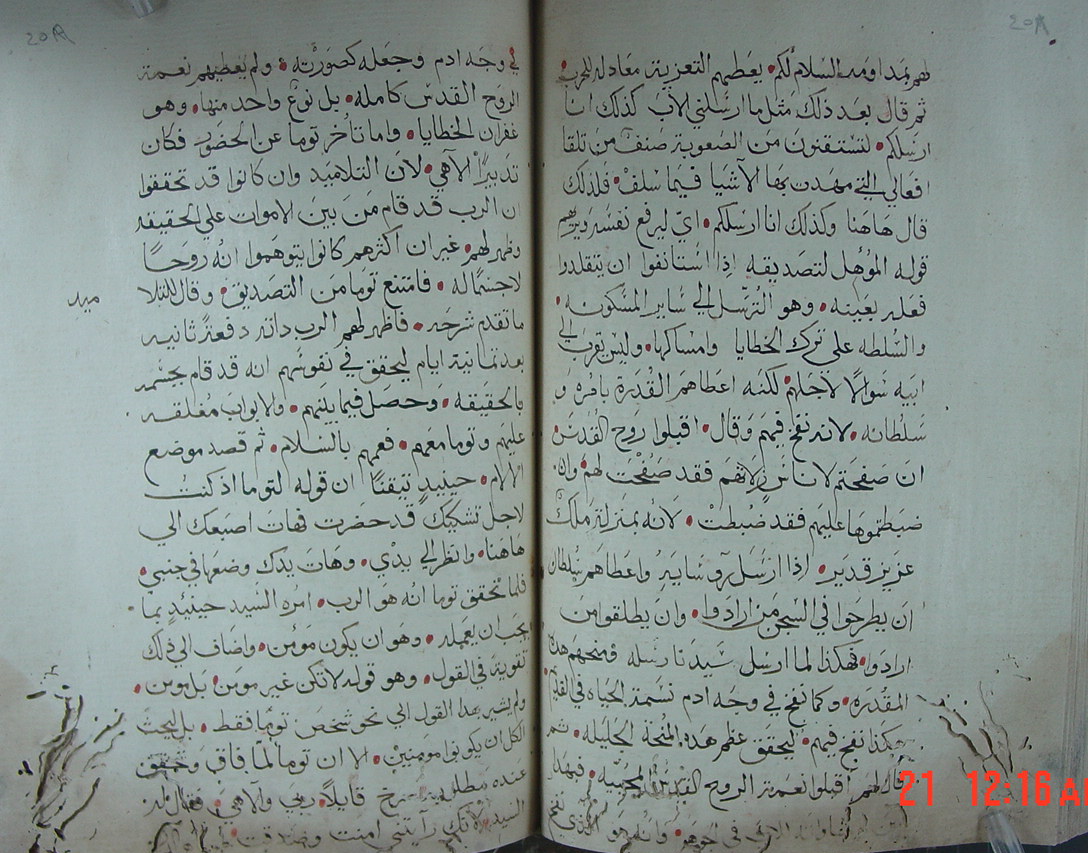 لهم بمدا ومه السلام لكم يعطيهم التعزية معادله للحرب
ثم قال بعد ذلك مثل ما ارسلني لاب كذلك انا
ارسلكم لتستقنون من الصعوبة صنف من تلقا
افعالي التي مهدت بها الاشيا فيما سلف فلذلك
قال هاهنا وكذلك انا ارسلكم اي ليرفع نفسه ويريهم
قوله المؤهل لتصديقه اذا استانفوا ان يتقلدوا
فعله بعينه وهو الترسل الي ساير المسكونه
والسلطه علي ترك الخطايا وامساكها وليس يقرب الي
ابيه سوالا لاجلهم لكنه اعطاهم القدرة بامره و
سلطانه لانه نفخ فيهم وقال اقبلوا روح القدس
ان صفحتم لاناس زلاتهم فقد صفحت لهم وان
ضبطتموها عليهم فقد ضبطت لانه بمنزلة ملك
عزيز قدير اذا ارسل روسا بيره واعطاهم سلطان
ان يطرحوا في السجن من ارادوا وان يطلقوا من
ارادوا فهكذا لما ارسل سيدنا رسله فمنحهم هذه
المقدره وكما نفخ في وجه ادم نسمة الحياه في القديم
هكذا نفخ فيهم ليحقق عظم هذه المنحة الجليله ثم
قال لهم اقبلوا نعمة الروح القدس المحييه فبهذا
في وجه ادم وجعله كصورته ولم يعطيهم نعمة
الروح القدس كامله بل نوع واحد منها وهو
غفران الخطايا واما تأخر توما عن الحضور فكان
تدبيرًا الاهي لان التلاميد وان كانوا قد تحققوا
ان الرب قد قام من بين الاموات علي الحقيقه
وظهر لهم غير ان اكثرهم كانوا يتوهموا انه روحًا
لا جسمًا له فامتنع توما من التصديق وقال للتلا
ميد
ما تقدم شرحه فاظهر لهم الرب داته دفعة ثانيه
بعد تمانية ايام ليحقق في نفوسهم انه قد قام بجسمه
بالحقيقه وحصل فيما بينهم والابواب مغلقه
عليهم وتوما معهم فعمهم بالسلام ثم قصد موضع
الالام حينيدٍ تيقنًا ان قوله لتوما اذ كنت
لاجل تشكيك قد حضرت فهات اصبعك الي
هاهنا وانظر الي يدي وهات يدك وضعها في جنبي
فلما تحقق توما انه هو الرب امره السيد حينيدٍ بما
يجب ان يعمله وهو ان يكون مومن واضاف الي ذلك
تقويه في القول وهو قوله لا تكن غير مومن بل مومن
ولم يشير بهدا القول الي نحو شخص توما فقط بل يحث
الكل ان يكونوا مومنين الا ان توما لما فاق وتحقق
عنده مطلبه صرخ قايلاً ربي والاهي فقال له
20A
20A
21 12:16 A